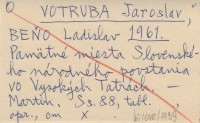 VOTRUBA Jaroslav,
BEŇO Ladislav 1961.
Pamätné miesta Slovenské-
ho národného povstania
vo Vysokých Tatrách. —
Martin. Ss. 88, tabl.,
opr., cm X.